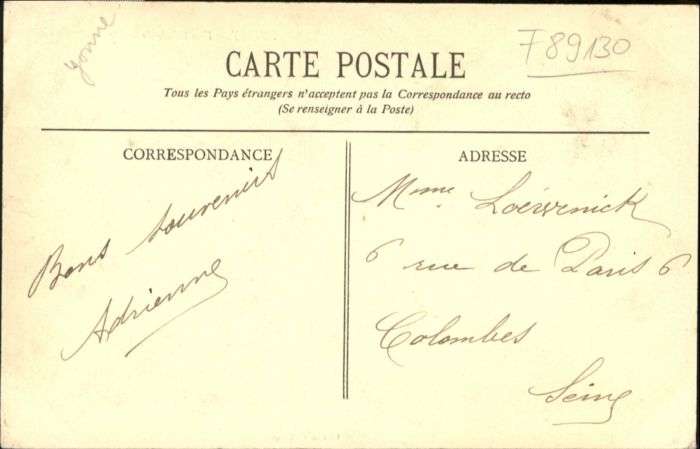 Yonne
F89130
CARTE POSTALE
Tous les Pays étrangers n'acceptent pas la Correspondance au recto
(Se renseigner à la Poste)
CORRESPONDANCE
Bons souvenirs
Adrienne
ADRESSE
Mme Loewenick
6 rue de Paris 6
Colombes
Seine